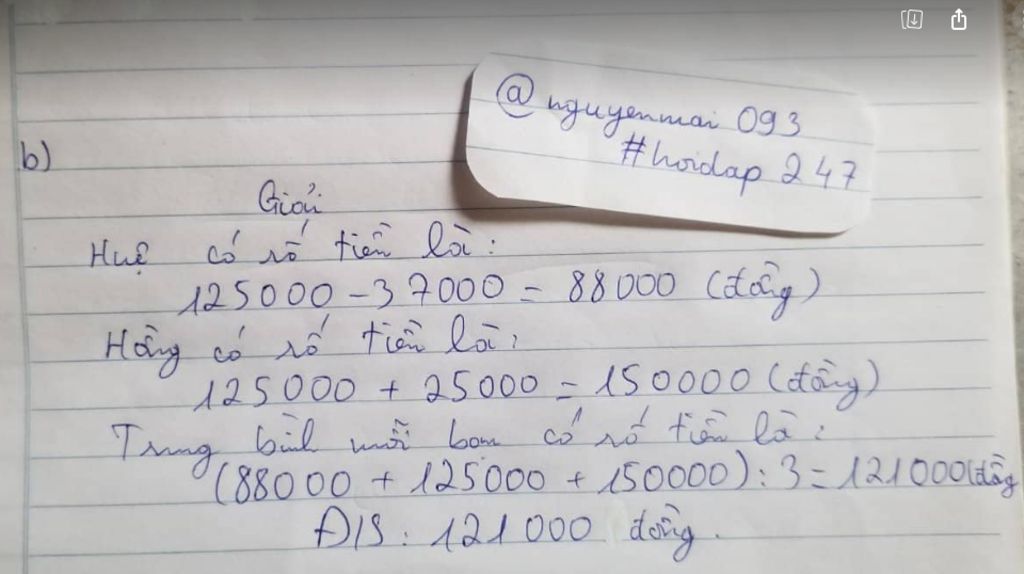 @nguyenmai 093
#hoidap 247
b)
Giải
Huệ có số tiền là:
125000 - 37000 = 88000 (đồng)
Hồng có số tiền là:
125000 + 25000 = 150000 (đồng)
Trung bình mỗi bạn có số tiền là:
(88000 + 125000 + 150000) : 3 = 121000 (đồng
Đ/S: 121000 đồng.